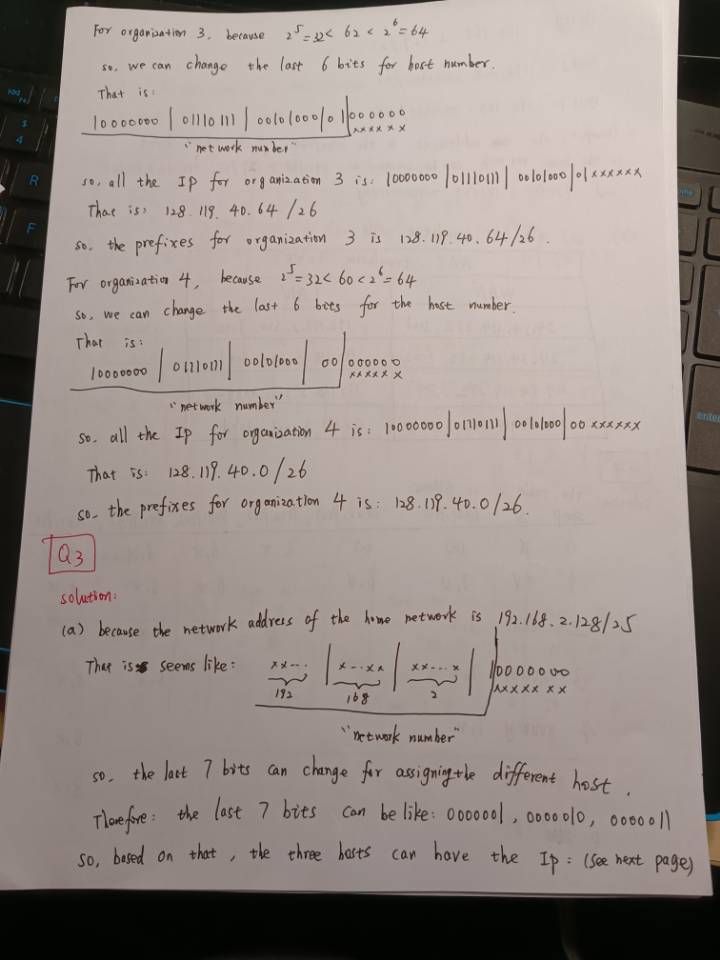 For organization 3, because 2^5=32< 62 < 2^6=64
so, we can change the last 6 bits for host number.
That is:
10000000 | 01110111 | 00101000 | 01 000000
xxxxxx
"network number"
so, all the Ip for organization 3 is: 10000000 | 01110111 | 00101000 | 01 xxxxxx
That is: 128.119.40.64/26
so, the prefixes for organization 3 is 128.119.40.64/26.
For organization 4, because 2^5=32< 60 < 2^6=64
so, we can change the last 6 bits for the host number.
That is:
10000000 | 01110111 | 00101000 | 00 000000
xxxxx x
"network number"
so, all the Ip for organization 4 is: 10000000 | 01110111 | 00101000 | 00 xxxxxx
That is: 128.119.40.0/26
so, the prefixes for organization 4 is: 128.119.40.0/26.
Q3
solution:
(a) because the network address of the home network is 192.168.2.128/25
That is seems like: xx-... | x-..xx | xx-...x | 1 0000000
192 168 2 xxxxx xx
"network number"
so, the last 7 bits can change for assigning the different host.
Therefore: the last 7 bits can be like: 0000001, 0000010, 0000011
so, based on that, the three hosts can have the Ip: (see next page)
enter
R
F
S
4